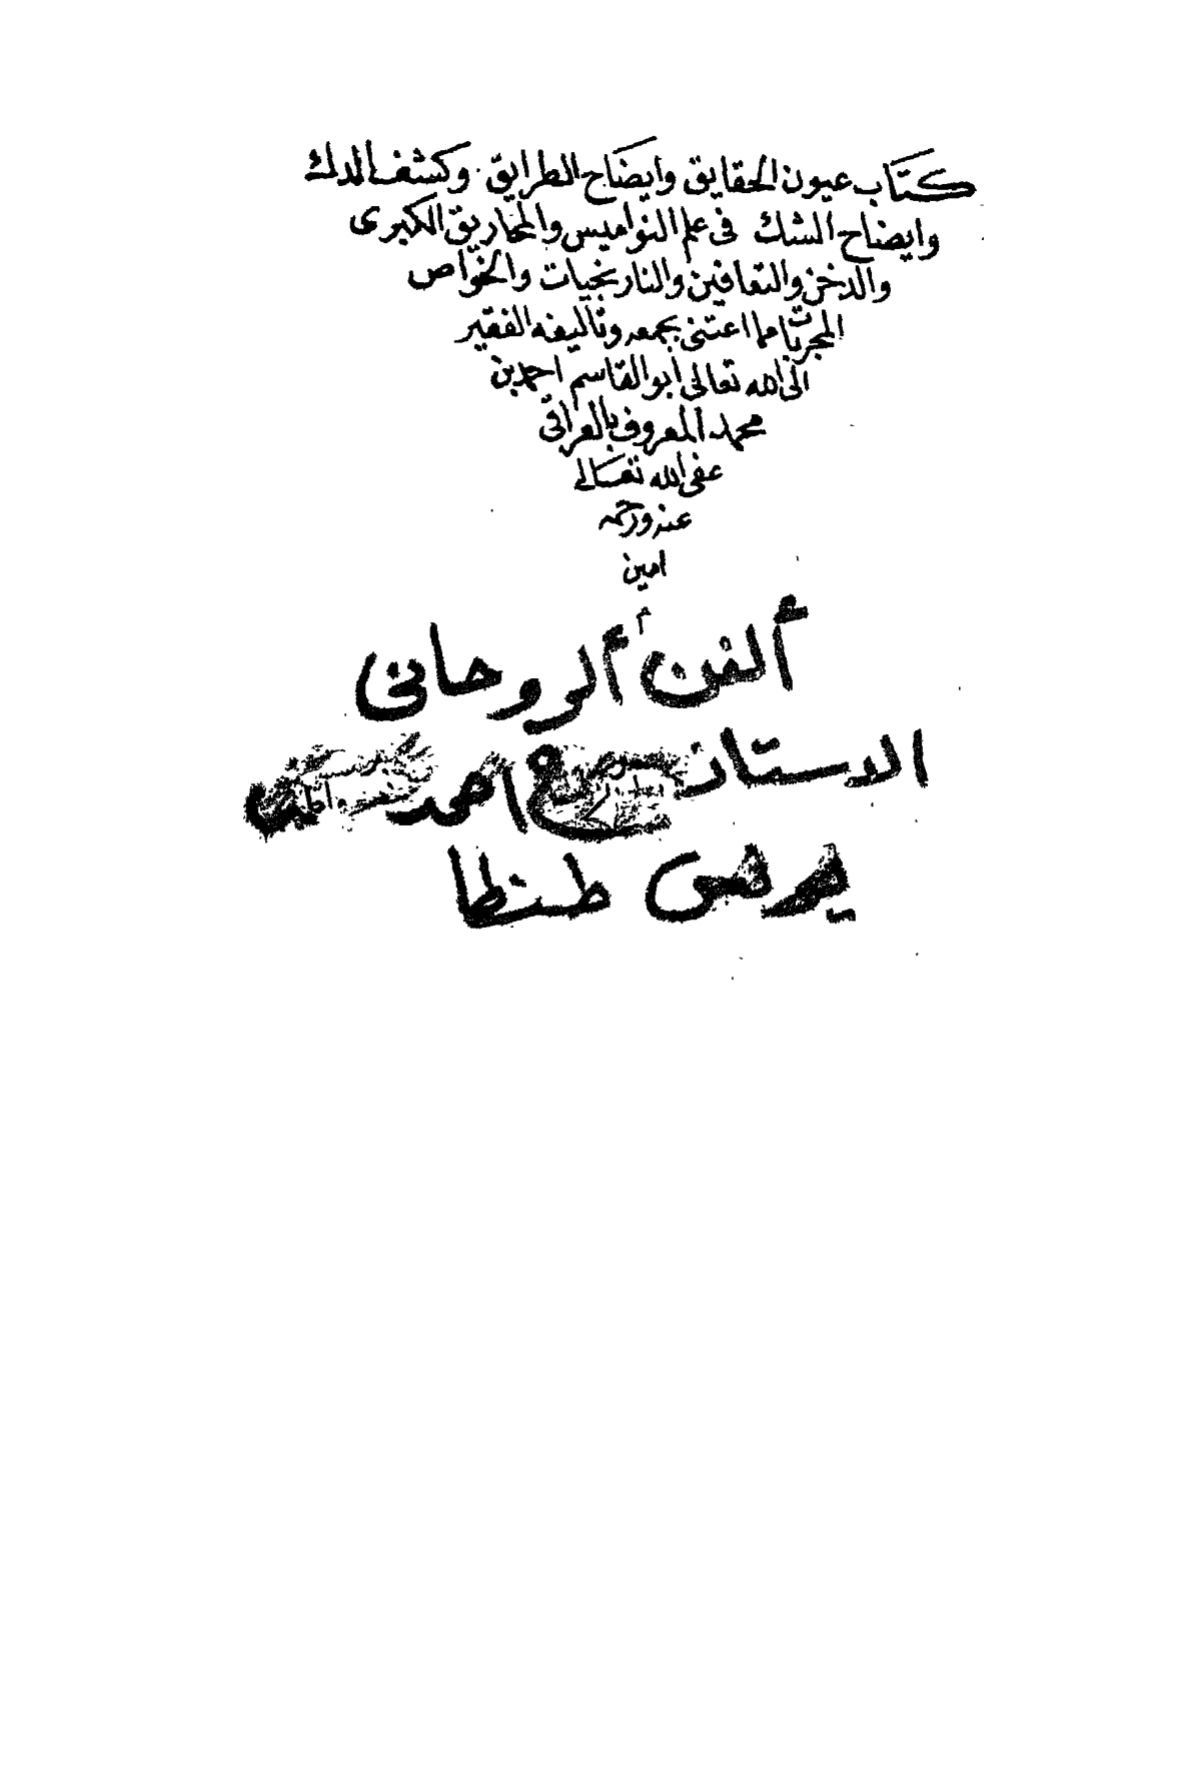 كتاب عيون الحقايق وايضاح الطرايق وكشف الدك
وايضاح الشك فى علم النواميس والمخاريق الكبرى
والدخن والتعافين والنارنجيات والخواص
المجربات مما اعتنى بجمعه وتاليفه الفقير
الى الله تعالى ابو القاسم احمد بن
محمد المعروف بالعراقى
عفى الله تعالى
عنه ورحمه
امين
م
ألفن ألروحانى
الاستاذ احمد
طنطا